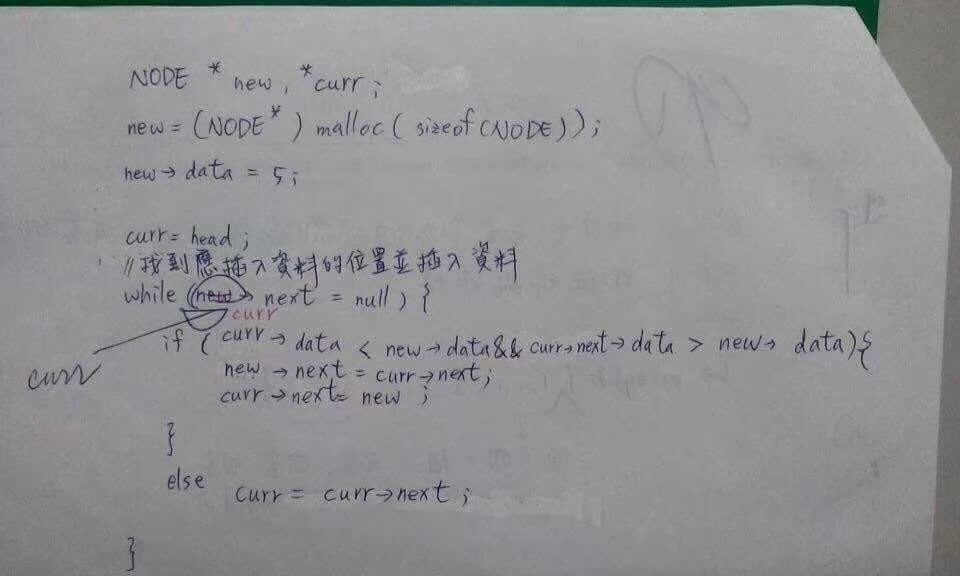 NODE * new, *curr;
new = (NODE*) malloc( sizeof(NODE));
new→data = 5;
curr = head;
//找到應插入資料的位置並插入資料
while (new→next = null) {
curr
if (curr→data < new→data&& curr→next→data > new→data){
curr
new→next = curr→next;
curr→next= new ;
}
else
curr = curr→next;
}